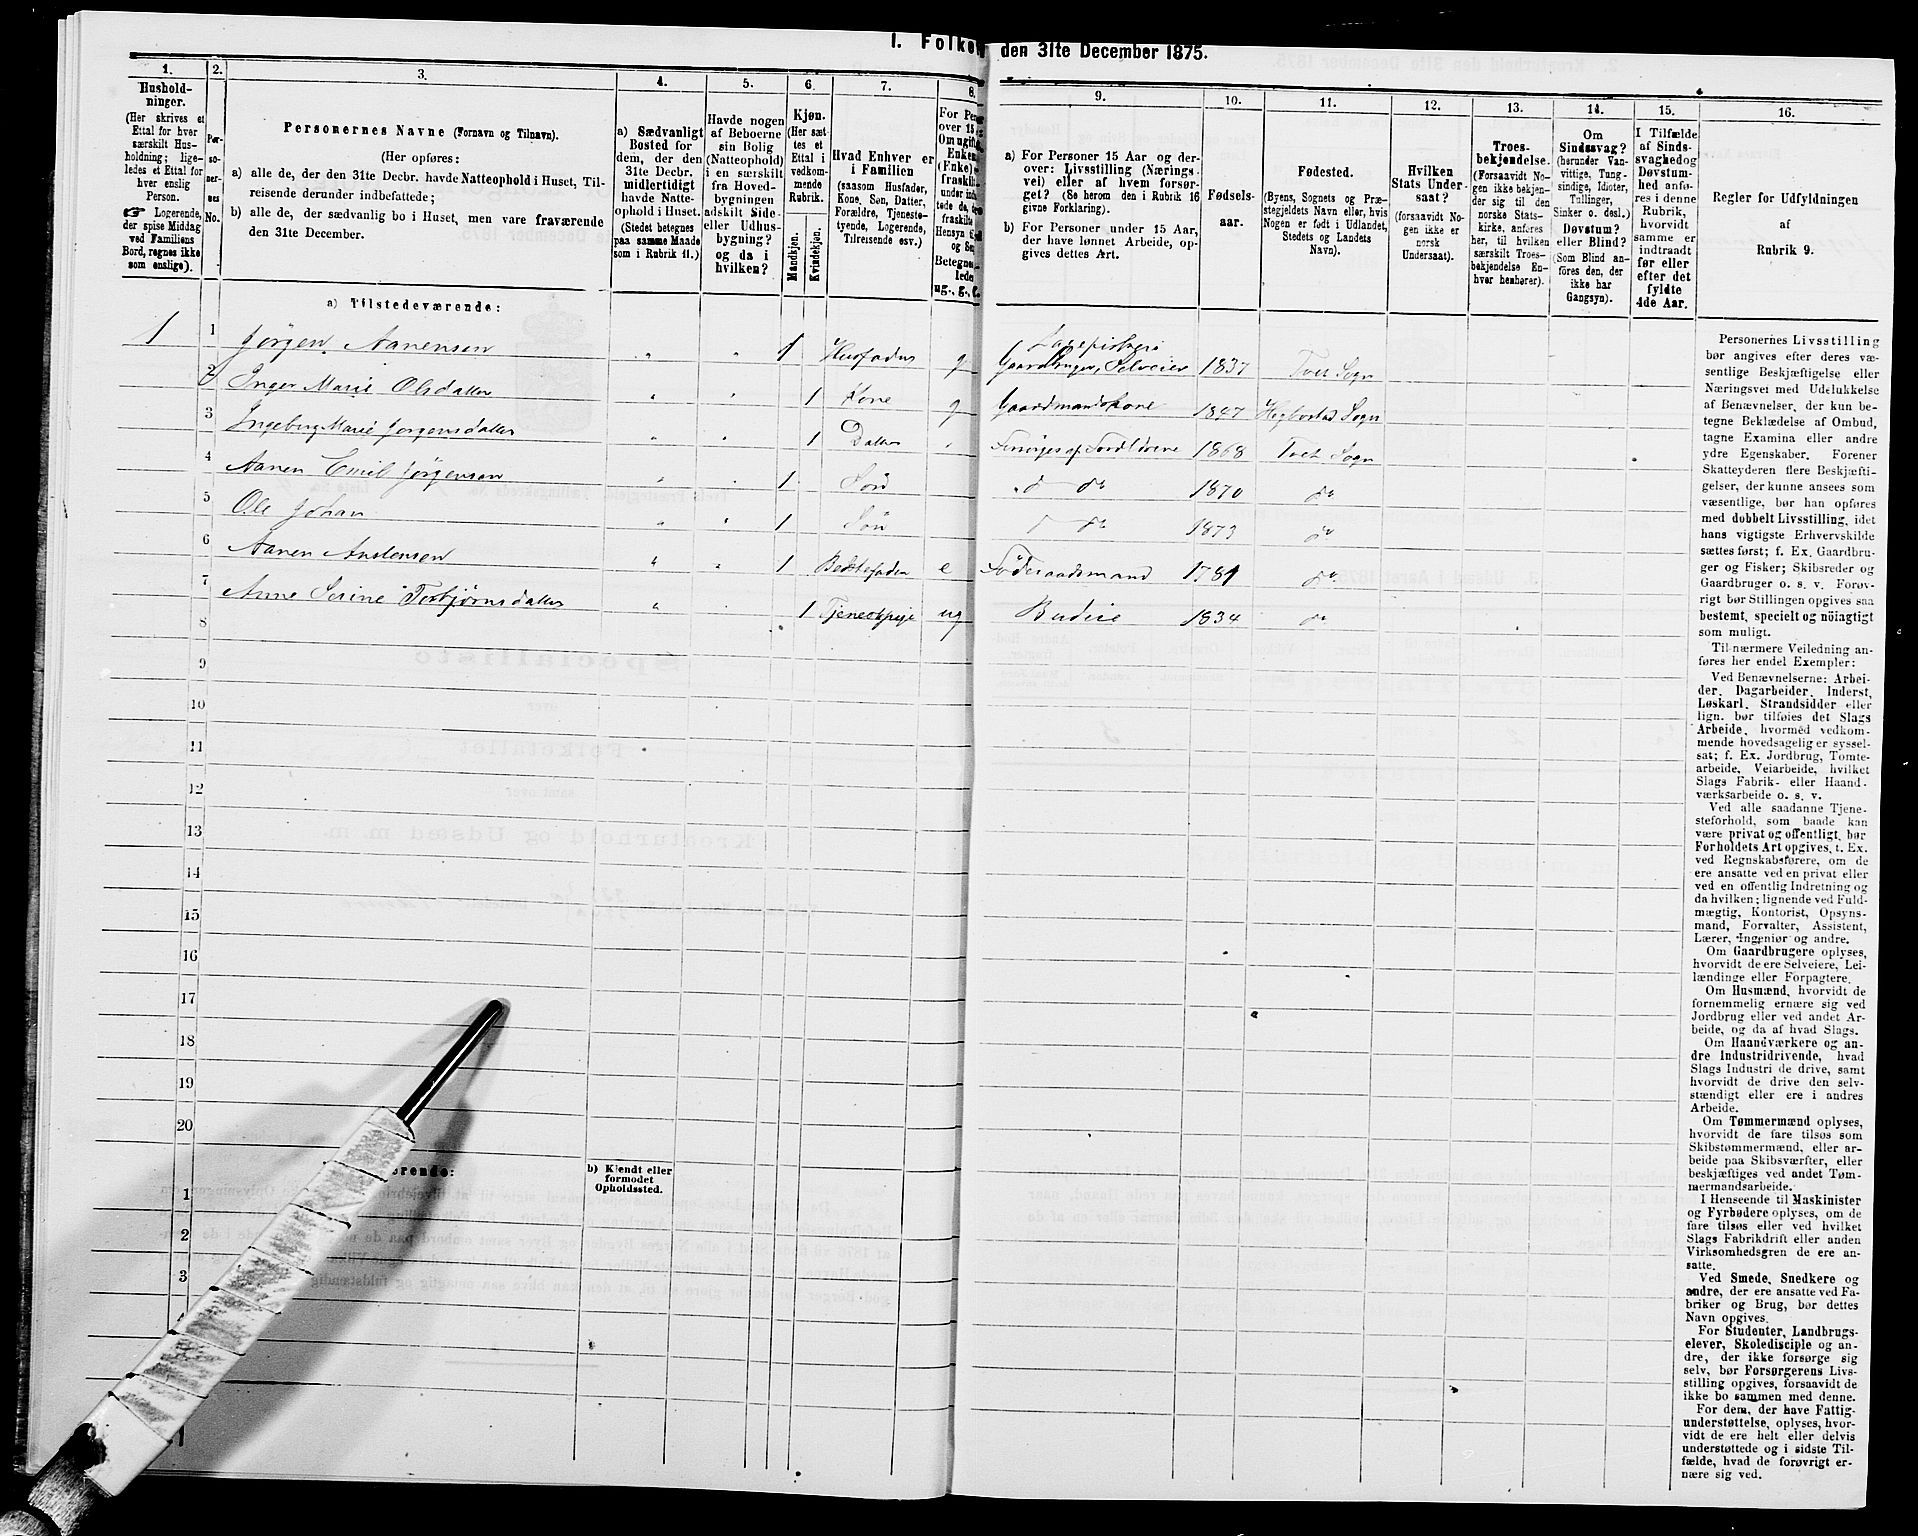 I. Folke den 31te December 1875.
1.
Hushold-
ninger.
(Her skrives et
Ettal for hver
særskilt Hus-
holdning; lige-
ledes et Ettal for
hver enslig
Person.
☞ Logerende,
der spise Middag
ved Familiens
Bord, regnes ikke
som enslige).
2.
Per-
so-
ner-
nes
No.
3.
Personernes Navne (Fornavn og Tilnavn).
(Her opføres:
a) alle de, der den 31te Decbr. havde Natteophold i Huset, Til-
reisende derunder indbefattede;
b) alle de, der sædvanlig bo i Huset, men vare fraværende
den 31te December.
4.
a) Sædvanligt
Bosted for
dem, der den
31te Decbr.
midlertidigt
havde Natte-
ophold i Huset.
(Stedet betegnes
paa samme Maade
som i Rubrik 11.)
5.
Havde nogen
af Beboerne
sin Bolig
(Natteophold)
i en særskilt
fra Hoved-
bygningen
adskilt Side-
eller Udhus-
bygning?
og da i
hvilken?
6.
Kjøn.
(Her sæt-
tes et
Ettal i
vedkom-
mende
Rubrik.
Mandkjøn.
Kvindekjøn.
7.
Hvad Enhver er
i Familien
(saasom Husfader,
Kone, Søn, Datter,
Forældre, Tjeneste-
tyende, Logerende,
Tilreisende osv.)
8.
For Pe
over 15
Om ugift
Enke
(Enke)
fraskilt
under ind
tede de,
fraskilte
Hensyn t
og S
Betegne
lede
ug., g., e.
9.
a) For Personer 15 Aar og der-
over: Livsstilling (Nærings-
vei) eller af hvem forsør-
get? (Se herom den i Rubrik 16
givne Forklaring).
b) For Personer under 15 Aar,
der have lønnet Arbeide, op-
gives dettes Art.
10.
Fødsels-
aar.
11.
Fødested.
(Byens, Sognets og Præ-
stegjeldets Navn eller, hvis
Nogen er født i Udlandet,
Stedets og Landets
Navn).
12.
Hvilken
Stats Under-
saat?
(forsaavidt No-
gen ikke er
norsk
Undersaat).
13.
Troes-
bekjendelse.
(Forsaavidt No-
gen ikke bekjen-
der sig til den
norske Stats-
kirke, anføres
her, til hvilken
særskilt Troes-
bekjendelse En-
hver henhører).
14.
Om
Sindssvag?
(herunder Van-
vittige, Tung-
sindige, Idioter,
Tullinger,
Sinker o. desl.)
Døvstum?
eller Blind?
(Som Blind an-
føres den, der
ikke har
Gangsyn).
15.
I Tilfælde
af Sinds-
svaghed og
Døvstum-
hed anfø-
res i denne
Rubrik,
hvorvidt
samme er
indtraadt
før eller
efter det
fyldte
4de Aar.
16.
Regler for Udfyldningen
af
Rubrik 9.
a) Tilstedeværende:
1 1 Jörgen Aanensen " " 1 Husfader g Gaardbruger, Selveier 1837 Tvet Sogn
2 Inger Marie Olsdatter " " 1 Kone g Gaardmandskone 1847 Hegbostad Sogn
3 Ingeborg Marie Jörgensdatter " " 1 Datter " Forsörges af Forældrene 1868 Tvet Sogn
4 Aanen Emil Jörgensen " " 1 Sön do do 1870 do
5 Ole Johan " " 1 Sön do do 1873 do
6 Aanen Anstensen " " 1 Bedstefader e Föderaadsmand 1781 do
7 Anne Serine Torbjörnsdatter " 1 Tjenestpige ug Budeie 1834 do
8
9
10
11
12
13
14
15
16
17
18
19
20
ærende:
b) Kjendt eller
formodet
Opholdssted.
1
2
3
4
Personernes Livsstilling
bør angives efter deres væ-
sentlige Beskjæftigelse eller
Næringsvei med Udelukkelse
af Benævnelser, der kun be-
tegne Beklædelse af Ombud,
tagne Examina eller andre
ydre Egenskaber. Forener
Skatteyderen flere Beskjæfti-
gelser, der kunne ansees som
væsentlige, bør han opføres
med dobbelt Livsstilling, idet
hans vigtigste Erhvervskilde
sættes først; f. Ex. Gaardbru-
ger og Fisker; Skibsreder og
Gaardbruger o. s. v. Forøv-
rigt bør Stillingen opgives saa
bestemt, specielt og nöiagtigt
som muligt.
Til nærmere Veiledning an-
føres her endel Exempler:
Ved Benævnelserne: Arbei-
der, Dagarbeider, Inderst,
Løskarl, Strandsidder eller
lign. bør tilføies det Slags
Arbeide, hvormed vedkom-
mende hovedsagelig er syssel-
sat; f. Ex. Jordbrug, Tomte-
arbeide, Veiarbeide, hvilket
Slags Fabrik- eller Haand-
værksarbeide o. s. v.
Ved alle saadanne Tjene-
steforhold, som baade kan
være privat og offentligt, bør
Forholdets Art opgives, f. Ex.
ved Regnskabsførere, om de
ere ansatte ved en privat eller
ved en offentlig Indretning og
da hvilken; lignende ved Fuld-
mægtig, Kontorist, Opsyns-
mand, Forvalter, Assistent,
Lærer, Ingeniør og andre.
Om Gaardbrugere oplyses,
hvorvidt de ere Selveiere, Lei-
lændinge eller Forpagtere.
Om Husmænd, hvorvidt de
fornemmelig ernære sig ved
Jordbrug eller ved andet Ar-
beide, og da af hvad Slags.
Om Haandværkere og an-
dre Industridrivende, hvad
Slags Industri de drive, samt
hvorvidt de drive den selv-
stændigt eller ere i andres
Arbeide.
Om Tømmermænd oplyses,
hvorvidt de fare tilsøs som
Skibstømmermænd, eller ar-
beide paa Skibsværfter, eller
beskjæftiges ved andet Tøm-
mermandsarbeide.
I Henseende til Maskinister
og Fyrbødere oplyses, om de
fare tilsøs eller ved hvilket
Slags Fabrikdrift eller anden
Virksomhedsgren de ere an-
satte.
Ved Smede, Snedkere og
andre, der ere ansatte ved Fa-
briker og Brug, bør dettes
Navn opgives.
For Studenter, Landbrugs-
elever, Skoledisciple og an-
dre, der ikke forsørge sig
selv, bør Forsørgerens Livs-
stilling opgives, forsaavidt de
ikke bo sammen med denne.
For dem, der have Fattig-
understøttelse, oplyses, hvor-
vidt de ere helt eller delvis
understøttede og i sidste Til-
fælde, hvad de forøvrigt er-
nære sig ved.